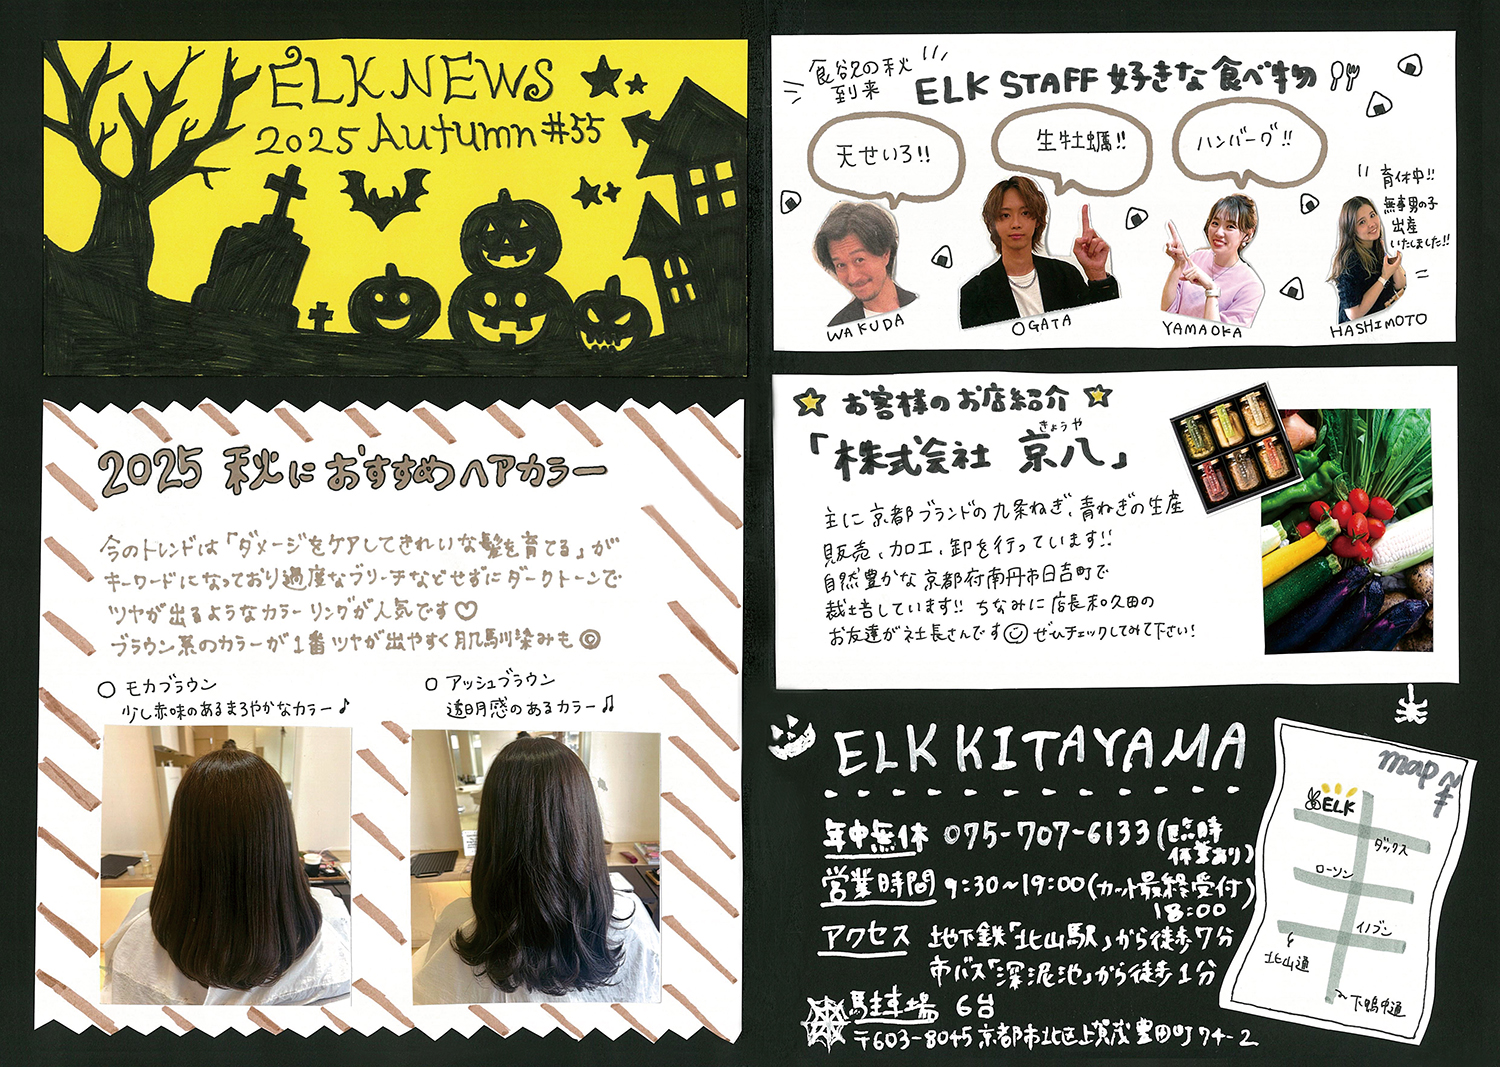 ELK NEWS
2025 Autumn #55
2025 秋におすすめヘアカラー
今のトレンドは「ダメージをケアしてきれいな髪を育てる」が
キーワードになっており過度なブリーチなどせずにダークトーンで
ツヤが出るようなカラーリングが人気です♡
ブラウン系のカラーが1番ツヤが出やすく肌馴染みも◎
○ モカブラウン
少し赤味のあるまろやかなカラー♪
○ アッシュブラウン
透明感のあるカラー♫
食欲の秋
到来
ELK STAFF 好きな食べ物
天せいろ!!
生牡蠣!!
ハンバーグ!!
育休中!!
無事男の子
出産
いたしました!!
WAKUDA
OGATA
YAMAOKA
HASHIMOTO
☆ お客様のお店紹介 ☆
きょうや
「株式会社 京八」
主に京都ブランドの九条ねぎ、青ねぎの生産
販売、加工、卸を行っています!!
自然豊かな京都府南丹市日吉町で
栽培しています!! ちなみに店長和久田の
お友達が社長さんです☺ ぜひチェックしてみて下さい!
ELK KITAYAMA
年中無休 075-707-6133(臨時
休業あり)
営業時間 9:30~19:00(カット最終受付)
18:00
アクセス 地下鉄「北山駅」から徒歩7分
市バス「深泥池」から徒歩1分
駐車場 6台
〒603-8045 京都市北区上賀茂豊田町74-2
map
ELK
ダックス
ローソン
イノブン
北山通
下鴨中通